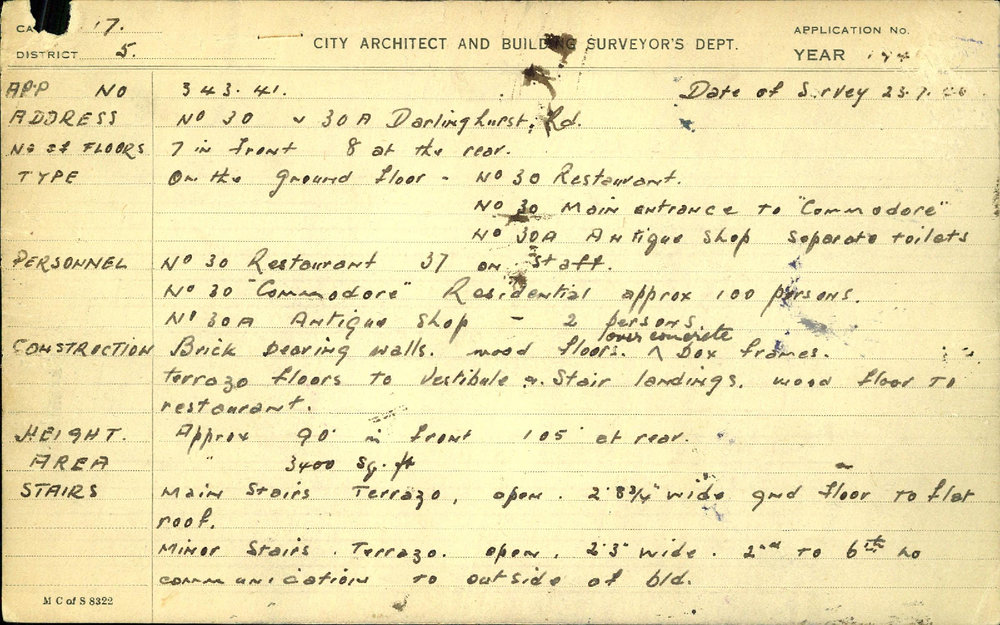 17.
DISTRICT 5.
CITY ARCHITECT AND BUILDING SURVEYOR'S DEPT.
APPLICATION No.
YEAR
APP No 343.41. Date of Survey
ADDRESS No 30 & 30A Darlinghurst, Rd.
No of FLOORS 7 in front 8 at the rear.
TYPE On the ground floor - No 30 Restaurant.
No 30 Main entrance to "Commodore"
No 30A Antique Shop separate toilets
PERSONNEL No 30 Restaurant 37 on staff.
No 30 "Commodore" Residential approx 100 persons.
No 30A Antique Shop - 2 persons
over concrete
CONSTRUCTION Brick bearing walls. wood floors. ^ Box frames.
terrazo floors to vestibule & stair landings. wood floor to
restaurant.
HEIGHT. Approx 90' in front 105' at rear.
AREA " 3400 sq. ft
STAIRS Main Stairs Terrazo, open. 2'8¾" wide gnd floor to flat
roof.
Minor Stairs. Terrazo. open. 2'3" wide. 2nd to 6th no
communication to outside of bld.
M C of S 8322